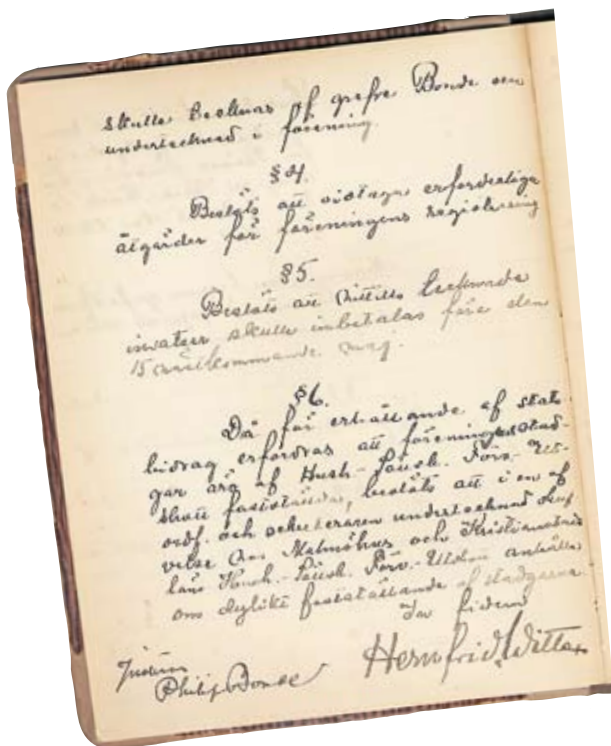 skulle tecknas af grefve Bonde och
undertecknad i förening.
§ 4.
Beslöts att vidtaga erforderliga
åtgärder för föreningens registrering
§ 5.
Beslöts att hittills tecknade
insatser skulle inbetalas före den
15 nästkommande maj.
§ 6.
Då för erhållande af stats
bidrag erfordras att föreningens stad-
gar äro af Hush.-Sällsk. Förv.-Ut-
skott fastställda, beslöts att i en af
ordf. och sekreteraren undertecknad skrif
velse hos Malmöhus och Kristianstads
läns Hush.-Sällsk. Förv.-Utskott anhålla
om dylikt fastställande af stadgarna.
In fidem
Hernfrid Witte
Justeras
Philip Bonde